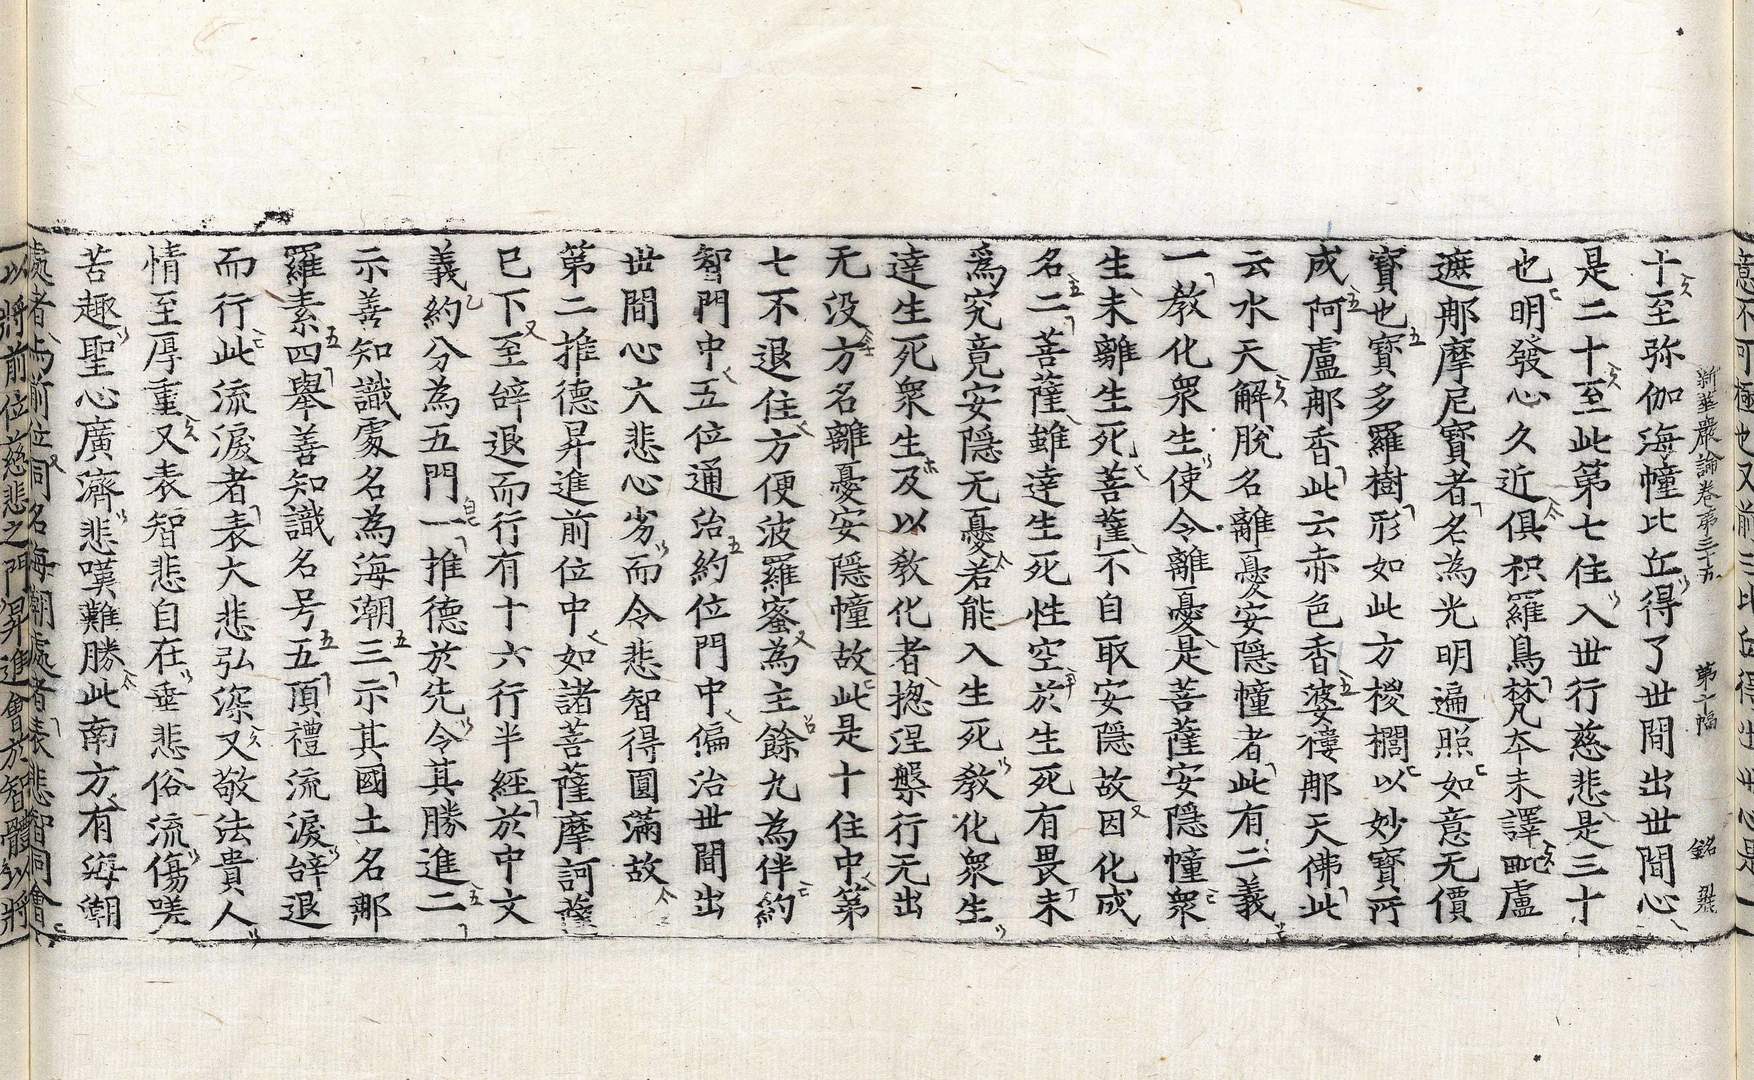 意不可極也又前三比丘得出世心是
新華嚴論卷第三十五 第二十幅 銘 張
十至弥伽海幢比丘得了世間出世間心
是二十至此第七住入世行慈悲是三十
也明發心久近俱枳羅鳥梵夲未譯毗盧
遮那摩尼寶者名為光明遍照如意无價
寶也寶多羅樹形如此方椶櫚以妙寶所
成阿盧那香此云赤色香婆樓那天佛此
云水天解脫名離憂安隱幢者此有二義
一教化衆生使令離憂是菩薩安隱幢衆
生未離生死菩薩不自取安隱故因化成
名二菩薩雖達生死性空於生死有畏未
爲究竟安隱无憂若能入生死教化衆生
達生死衆生及以教化者揔涅槃行无出
无没方名離憂安隱幢故此是十住中第
七不退住方便波羅蜜為主餘九為伴約
智門中五位通治約位門中偏治世間出
世間心大悲心劣而令悲智得圓滿故
第二推德昇進前位中如諸菩薩摩訶薩
已下至辝退而行有十六行半經於中文
義約分為五門一推德於先令其勝進二
示善知識處名為海潮三示其國土名那
羅素四舉善知識名号五頂禮流淚辝退
而行此流淚者表大悲弘深又敬法貴人
情至厚重又表智悲自在垂悲俗流傷嗟
苦趣聖心廣濟悲嘆難勝此南方有海潮
處者与前位同名海潮處者表悲智同會
以將前位慈悲之門昇進會於智體以將